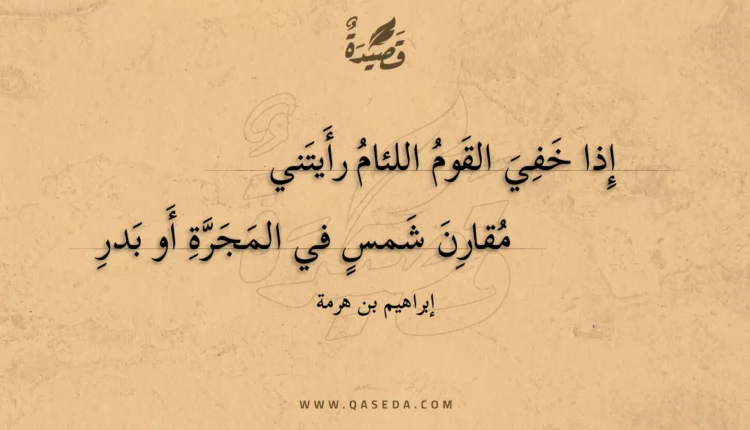 قَصِيدَةٌ
إِذا خَفِيَ القَومُ اللئامُ رأَيتَني
مُقارِنَ شَمسٍ في المَجَرَّةِ أَو بَدرِ
إبراهيم بن هرمة
WWW.QASEDA.COM